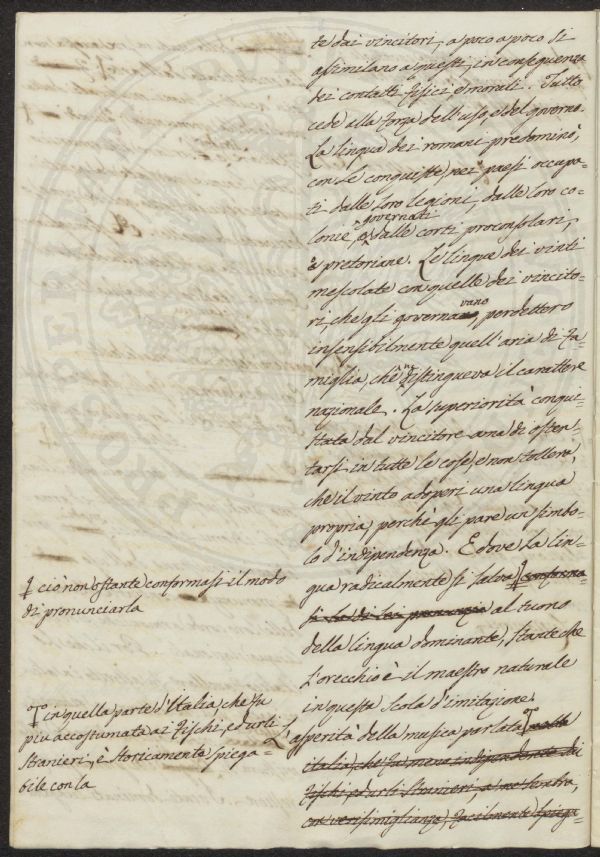 te dai vincitori, a poco a poco si
assimilano a questi, in conseguenza
dei contatti fisici e morali. Tutto
cede alla forza dell'uso, e del governo.
La lingua dei romani predominò,
con le conquiste, nei paesi occupa=
ti dalle loro legioni, dalle loro co=
governati
lonie, e dalle corti proconsolari,
e pretoriane. Le lingue dei vinti
mescolate con quelle dei vincito=
vano
ri, che gli governa, perdettero
insensibilmente quell'aria di fa=
miglia, che distingueva il carattere
nazionale. La superiorità conqui=
stata dal vincitore ama di osten=
tarsi in tutte le cose, e non tollera,
che il vinto adoperi una lingua
propria, perchè gli pare un simbo=
lo d'indipendenza. E dove la lin=
gua radicalmente si salva conforma
si la di lui pronunzia al tuono
della lingua dominante, stante che
l'orecchio è il maestro naturale
in questa scola d'imitazione.
L'asperità della musica parlata nella
italia, che fu meno indipendente dai
fischi, ed urli stranieri, a me sembra,
con verisimiglianza, facilmente spiega=
ciò non ostante conformasi il modo
di pronunciarla
in quella parte d'Italia, che fu
più accostumata ai fischi, ed urli
stranieri, è storicamente spiega=
bile con la